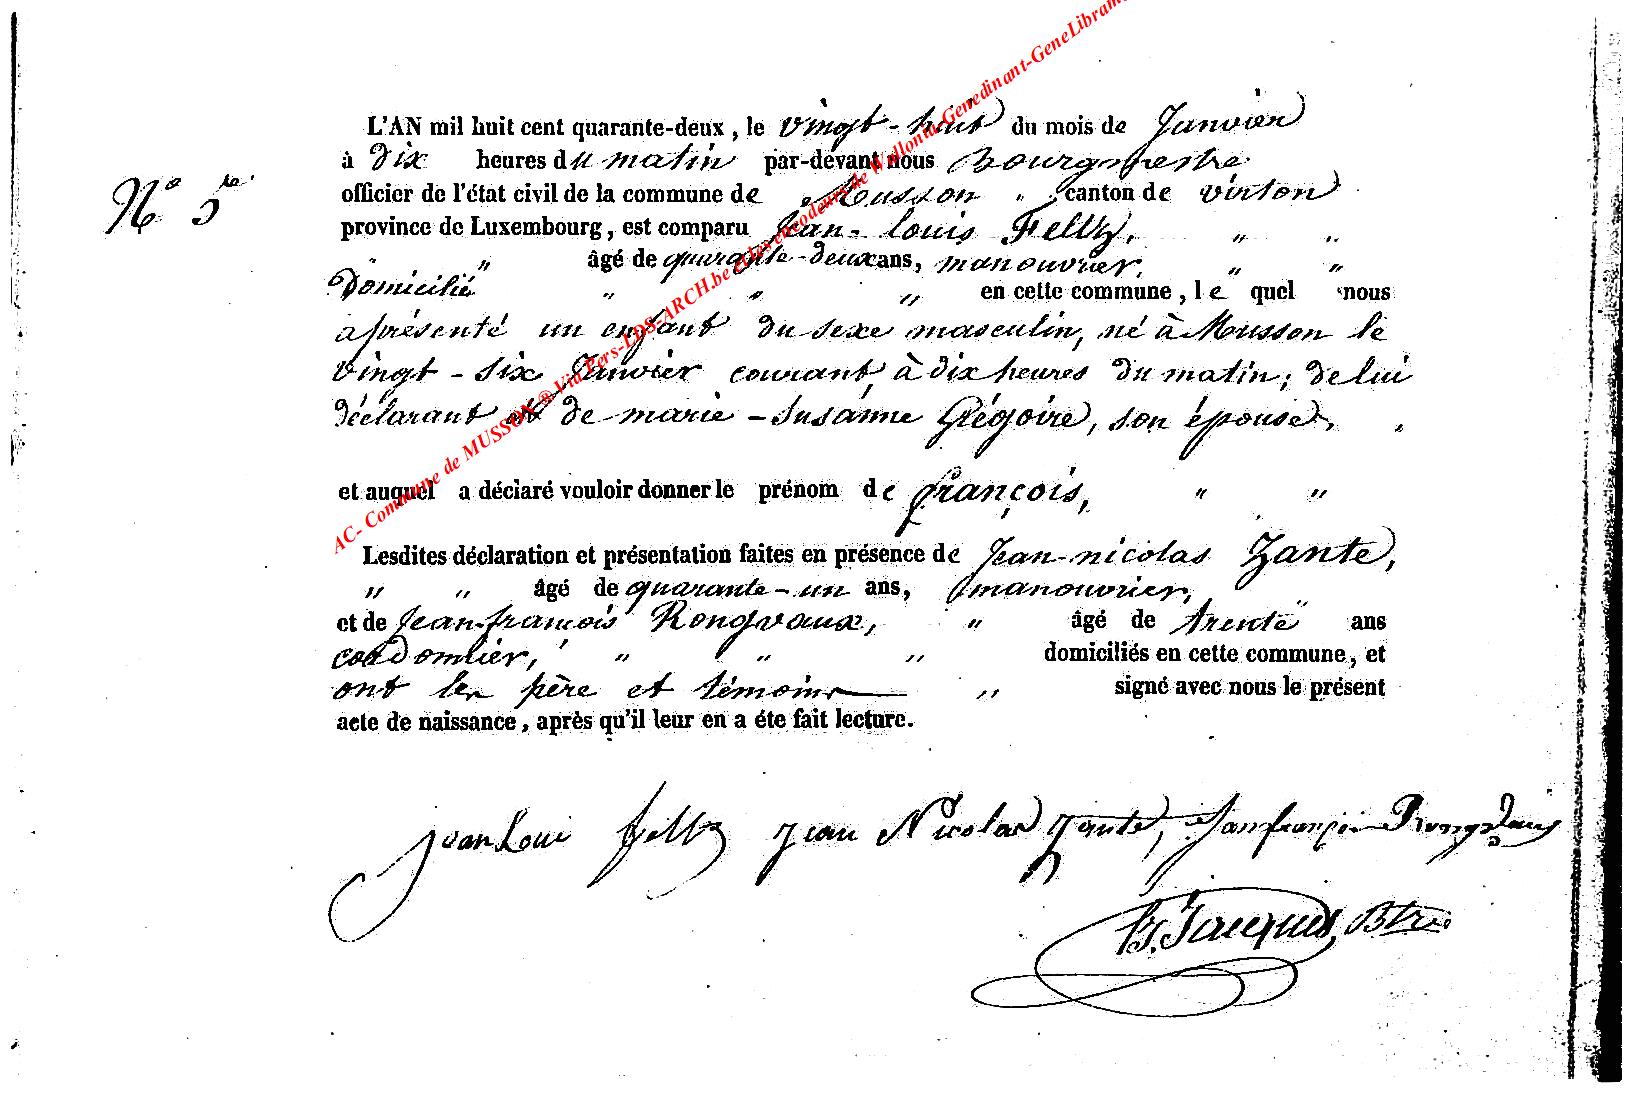 L'AN mil huit cent quarante-deux, le vingt-huit du mois de Janvier
à dix heures du matin par-devant nous Bourgmestre
N° 5
officier de l'état civil de la commune de Musson " canton de virton
province de Luxembourg, est comparu Jean-Louis Feltz, " "
" " âgé de quarante-deux ans, manouvrier, " "
Domicilié " " " en cette commune, le quel nous
a présenté un enfant du sexe masculin, né à Musson le
vingt-six Janvier courant, à dix heures du matin; de lui
déclarant et de marie-Susanne Grégoire, son épouse, "
et auquel a déclaré vouloir donner le prénom de françois, " "
Lesdites déclaration et présentation faites en présence de Jean-nicolas Zante,
" " âgé de quarante-un ans, manouvrier,
et de Jean-françois Rongvaux, " âgé de trente ans
cordonnier, " " " domiciliés en cette commune, et
ont les père et témoins " signé avec nous le présent
acte de naissance, après qu'il leur en a éte fait lecture.
Jean Loui feltz Jean Nicolas Zante, Janfrançoi Rongvaux
Jacques, Btre
AC- Commune de MUSSON ® Via Pers-LDS-ARCH.be et les encodeurs de Wallonia-Genedinant-GeneLibram